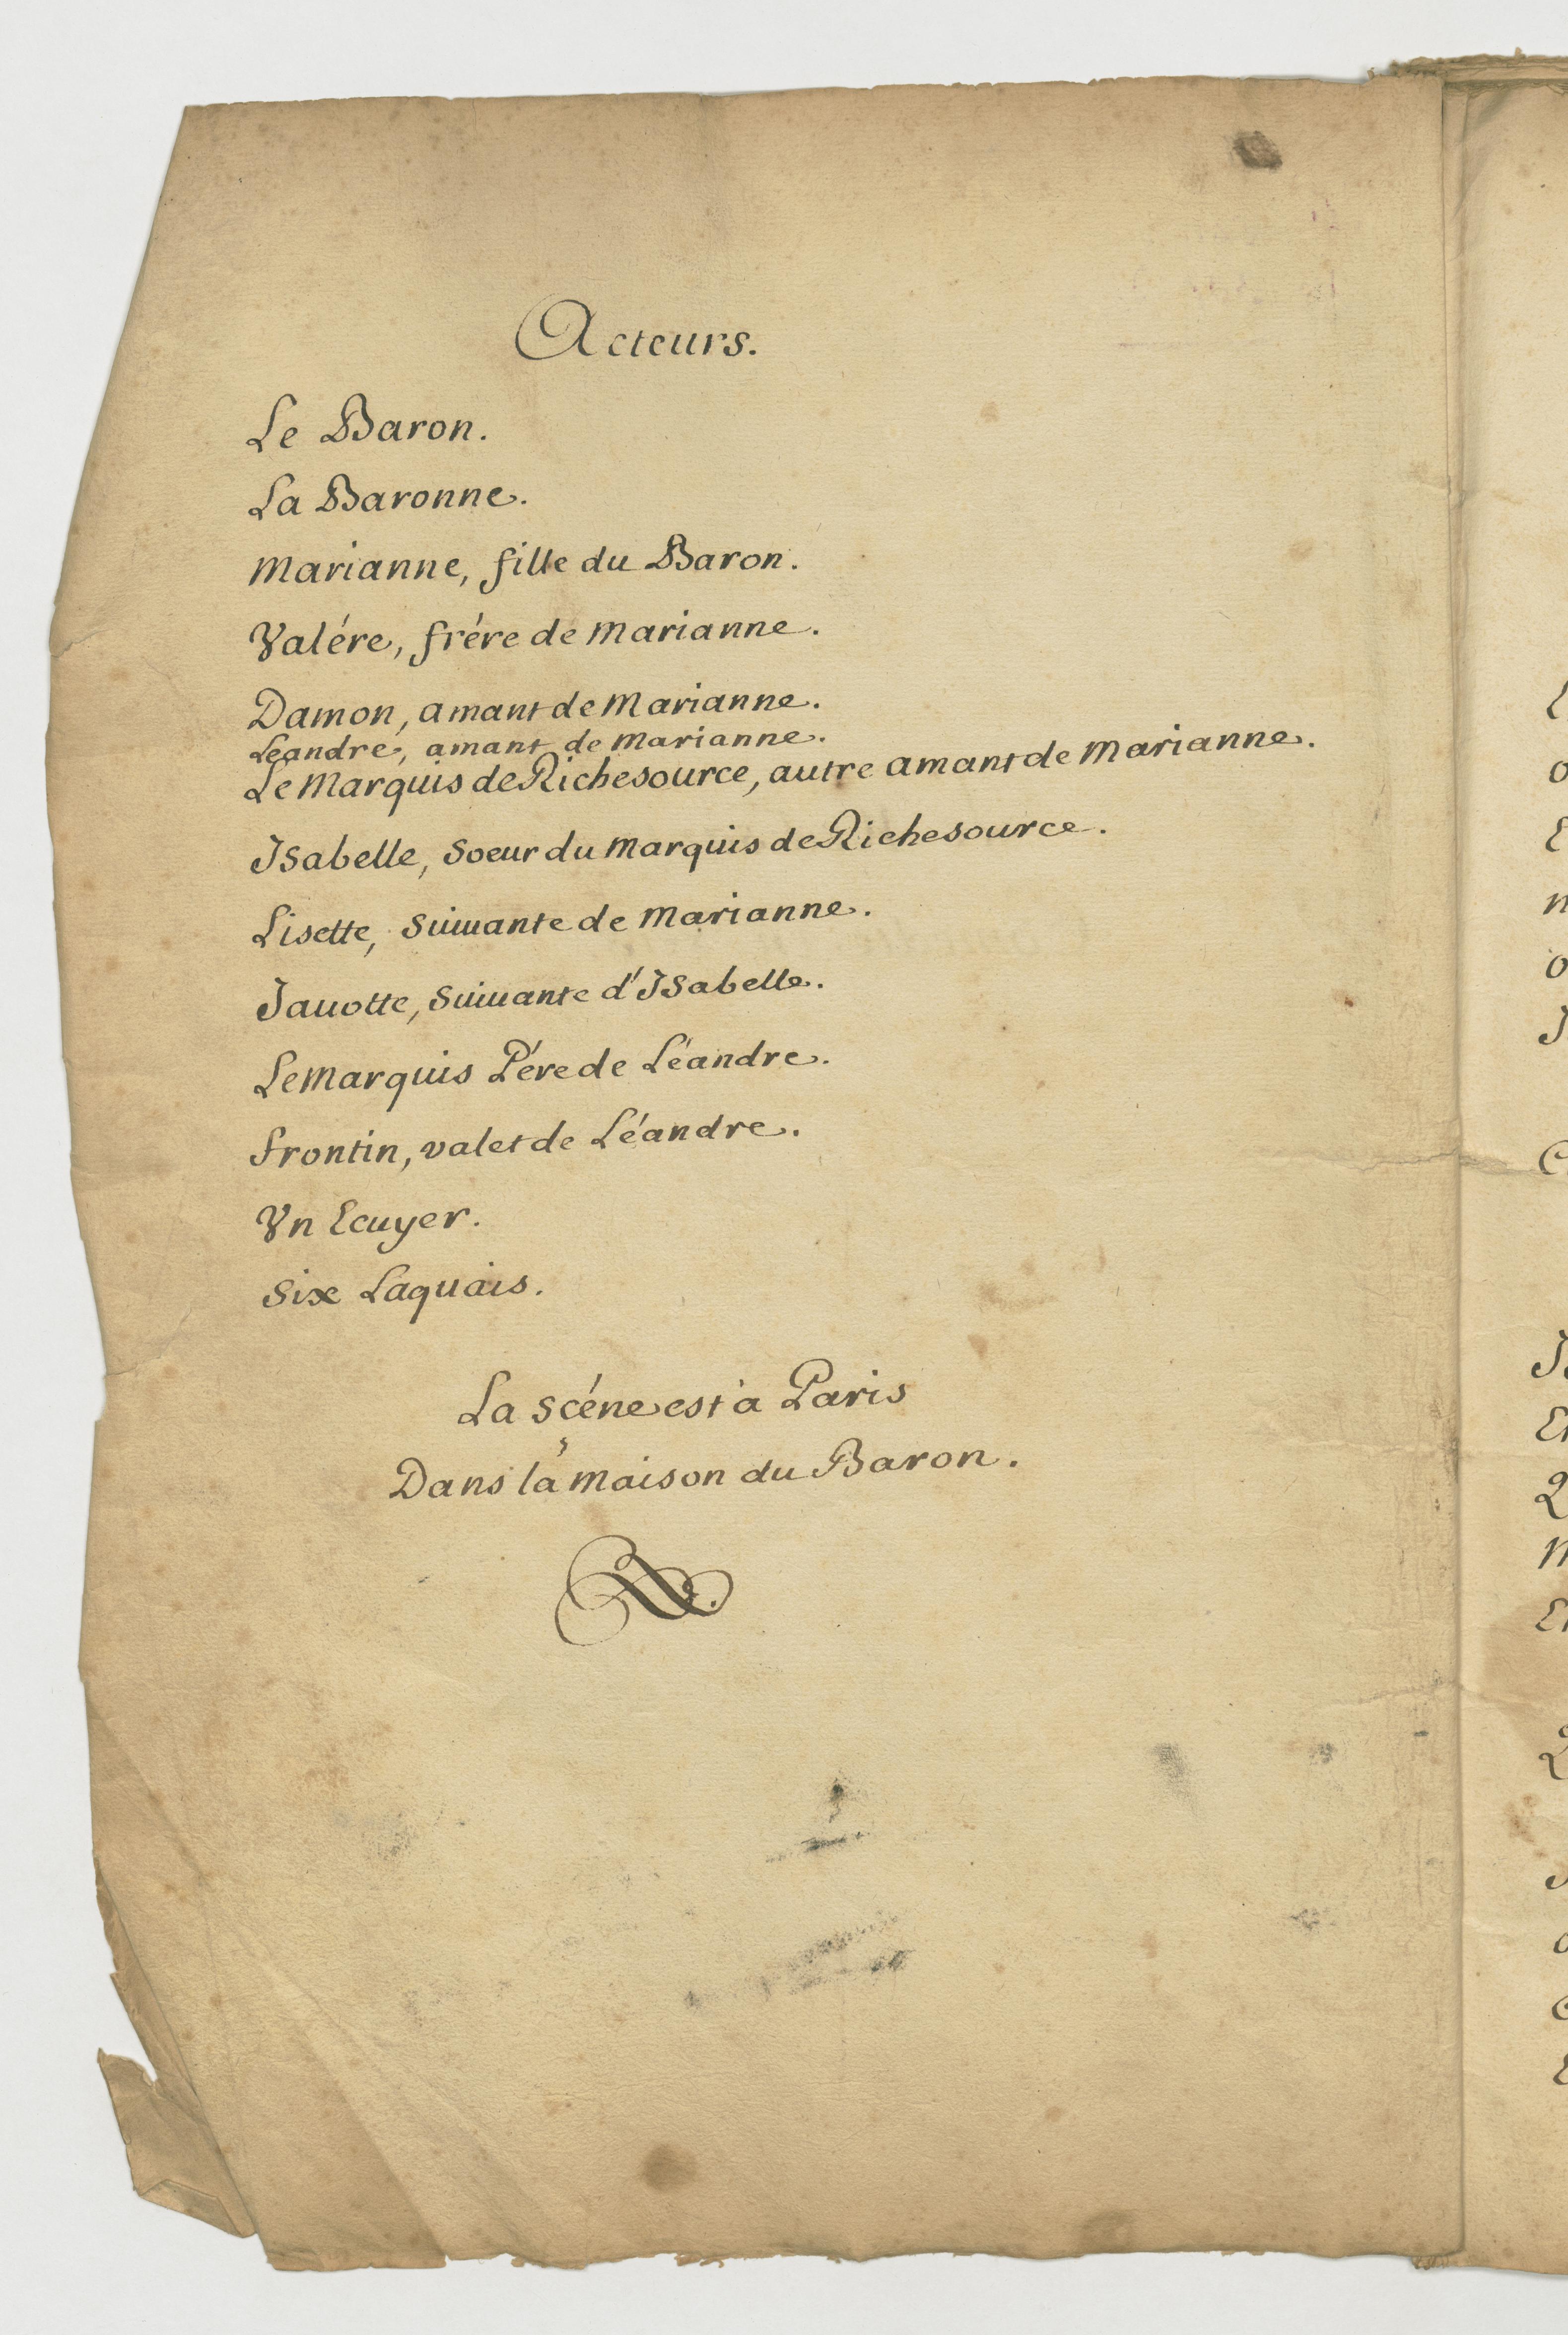 Acteurs.
Le Baron.
La Baronne.
Marianne, fille du Baron.
Valére, frére de Marianne.
Damon, amant de Marianne.
Leandre, amant de Marianne.
Le Marquis de Richesource, autre amant de Marianne.
Isabelle, Soeur du Marquis de Richesource.
Lisette, Suiuante de Marianne.
Jauotte, Suiuante d'Isabelle.
Le Marquis Pére de Léandre.
frontin, valet de Léandre.
Vn Ecuyer.
Six Laquais.
La Scéne est à Paris
Dans la maison du Baron.